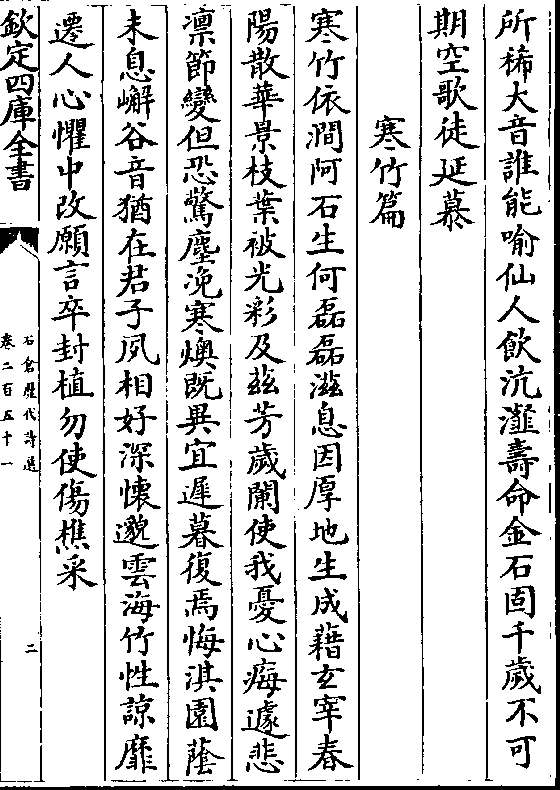 所稀大音誰能喻仙人飲沆瀣壽命金石固千歲不可
期空歌徒延慕
寒竹篇
寒竹依澗阿石生何磊磊滋息因厚地生成藉玄宰春
陽散華景枝葉被光彩及茲芳歲闌使我憂心痗遽悲
凛節變但恐驚塵浼寒燠既異宜遲暮復焉悔淇園蔭
未息嶰谷音猶在君子夙相好深懷邈雲海竹性諒靡
遷人心懼中改願言卒封植勿使傷樵采
欽定四庫全書
石倉歷代詩選
卷二百五十一
二